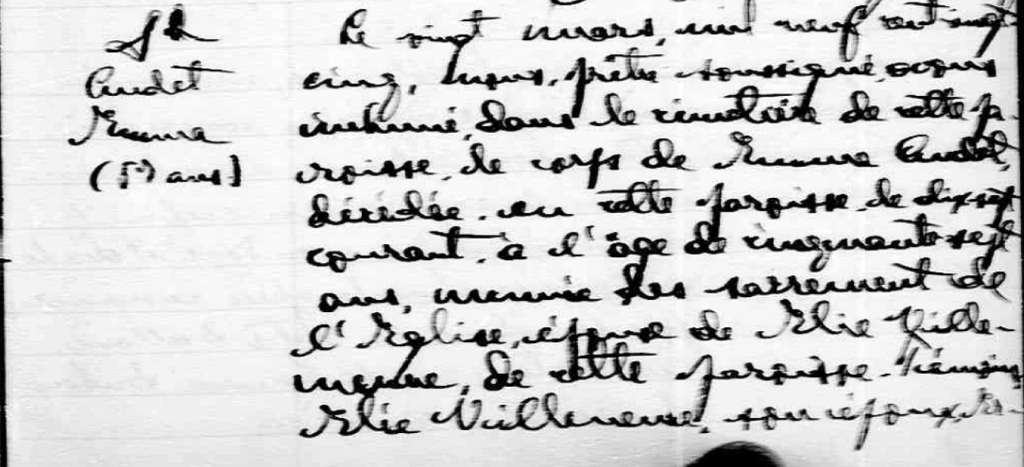 Sh
Audet
Emma
(57 ans)
Le vingt mars, mil neuf cent vingt
cinq, nous, prêtre soussigné, avons
inhumé, dans le cimetière de cette pa-
roisse, le corps de Emma Audet,
décédée, en cette paroisse, le dix-sept
courant, à l'âge de cinquante-sept
ans, munie des sacrement de
l'Eglise, épouse de Elie Ville-
neuve, de cette paroisse. Témoins
Elie Villeneuve, son époux,